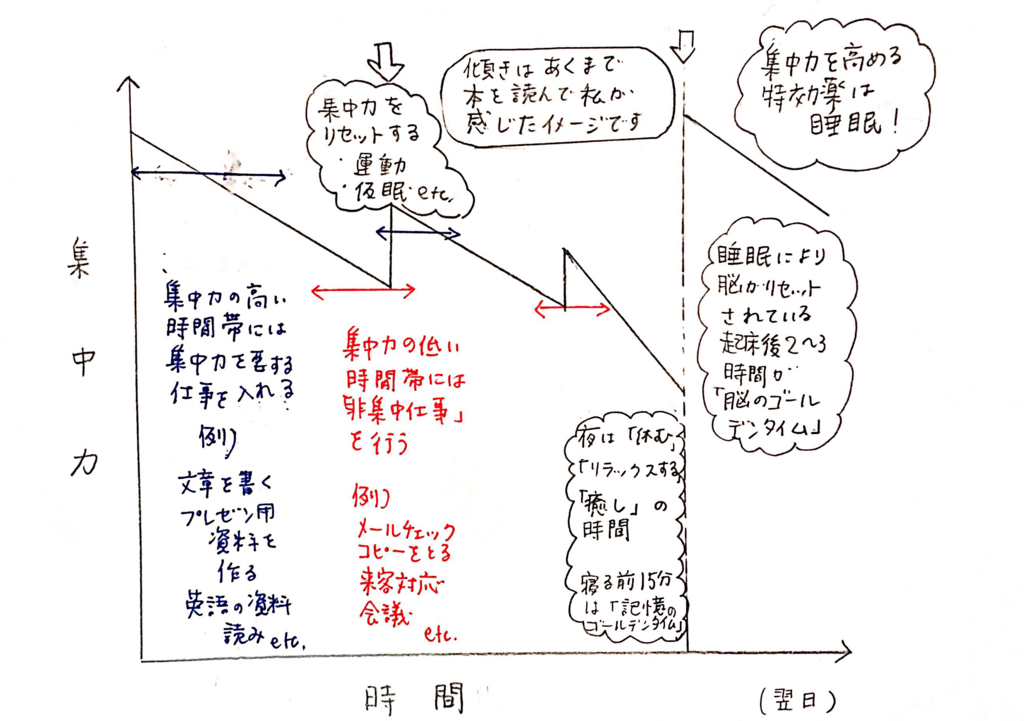 集中力を高める
特効薬は
睡眠！
傾きは あくまで
本を読んで私が
感じたイメージです
集中力を
リセットする
・運動
・仮眠 etc.
集中力
睡眠により
脳がリセット
されている
起床後2〜3
時間が
「脳のゴール
デンタイム」
集中力の高い
時間帯には
集中力を要する
仕事を入れる
例）
文章を書く
プレゼン用
資料を
作る
英語の資料
読み etc.
集中力の低い
時間帯には
「非集中仕事」
を行う
例）
メールチェック
コピーをとる
来客対応
会議
etc.
夜は「休む」
「リラックスする」
「癒し」の
時間
寝る前15分
は「記憶の
ゴールデンタイム」
時間
(翌日)